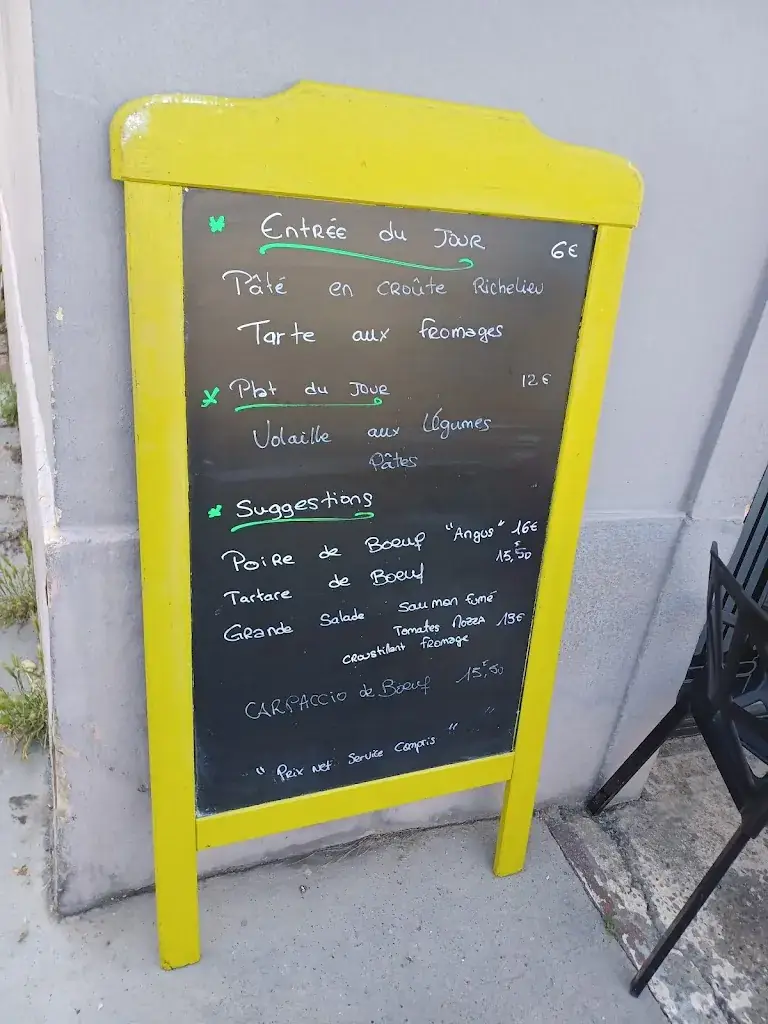 * Entrée du Jour 6€
Pâté en croûte Richelieu
Tarte aux fromages
* Plat du Jour 12€
Volaille aux Légumes
Pâtes
* Suggestions
Poire de Boeuf "Angus" 16€
Tartare de Boeuf 15,€50
Grande Salade Saumon fumé
Tomates Mozza 13€
croustillant fromage
CARPACCIO de Boeuf 15,€50
" Prix net Service Compris "